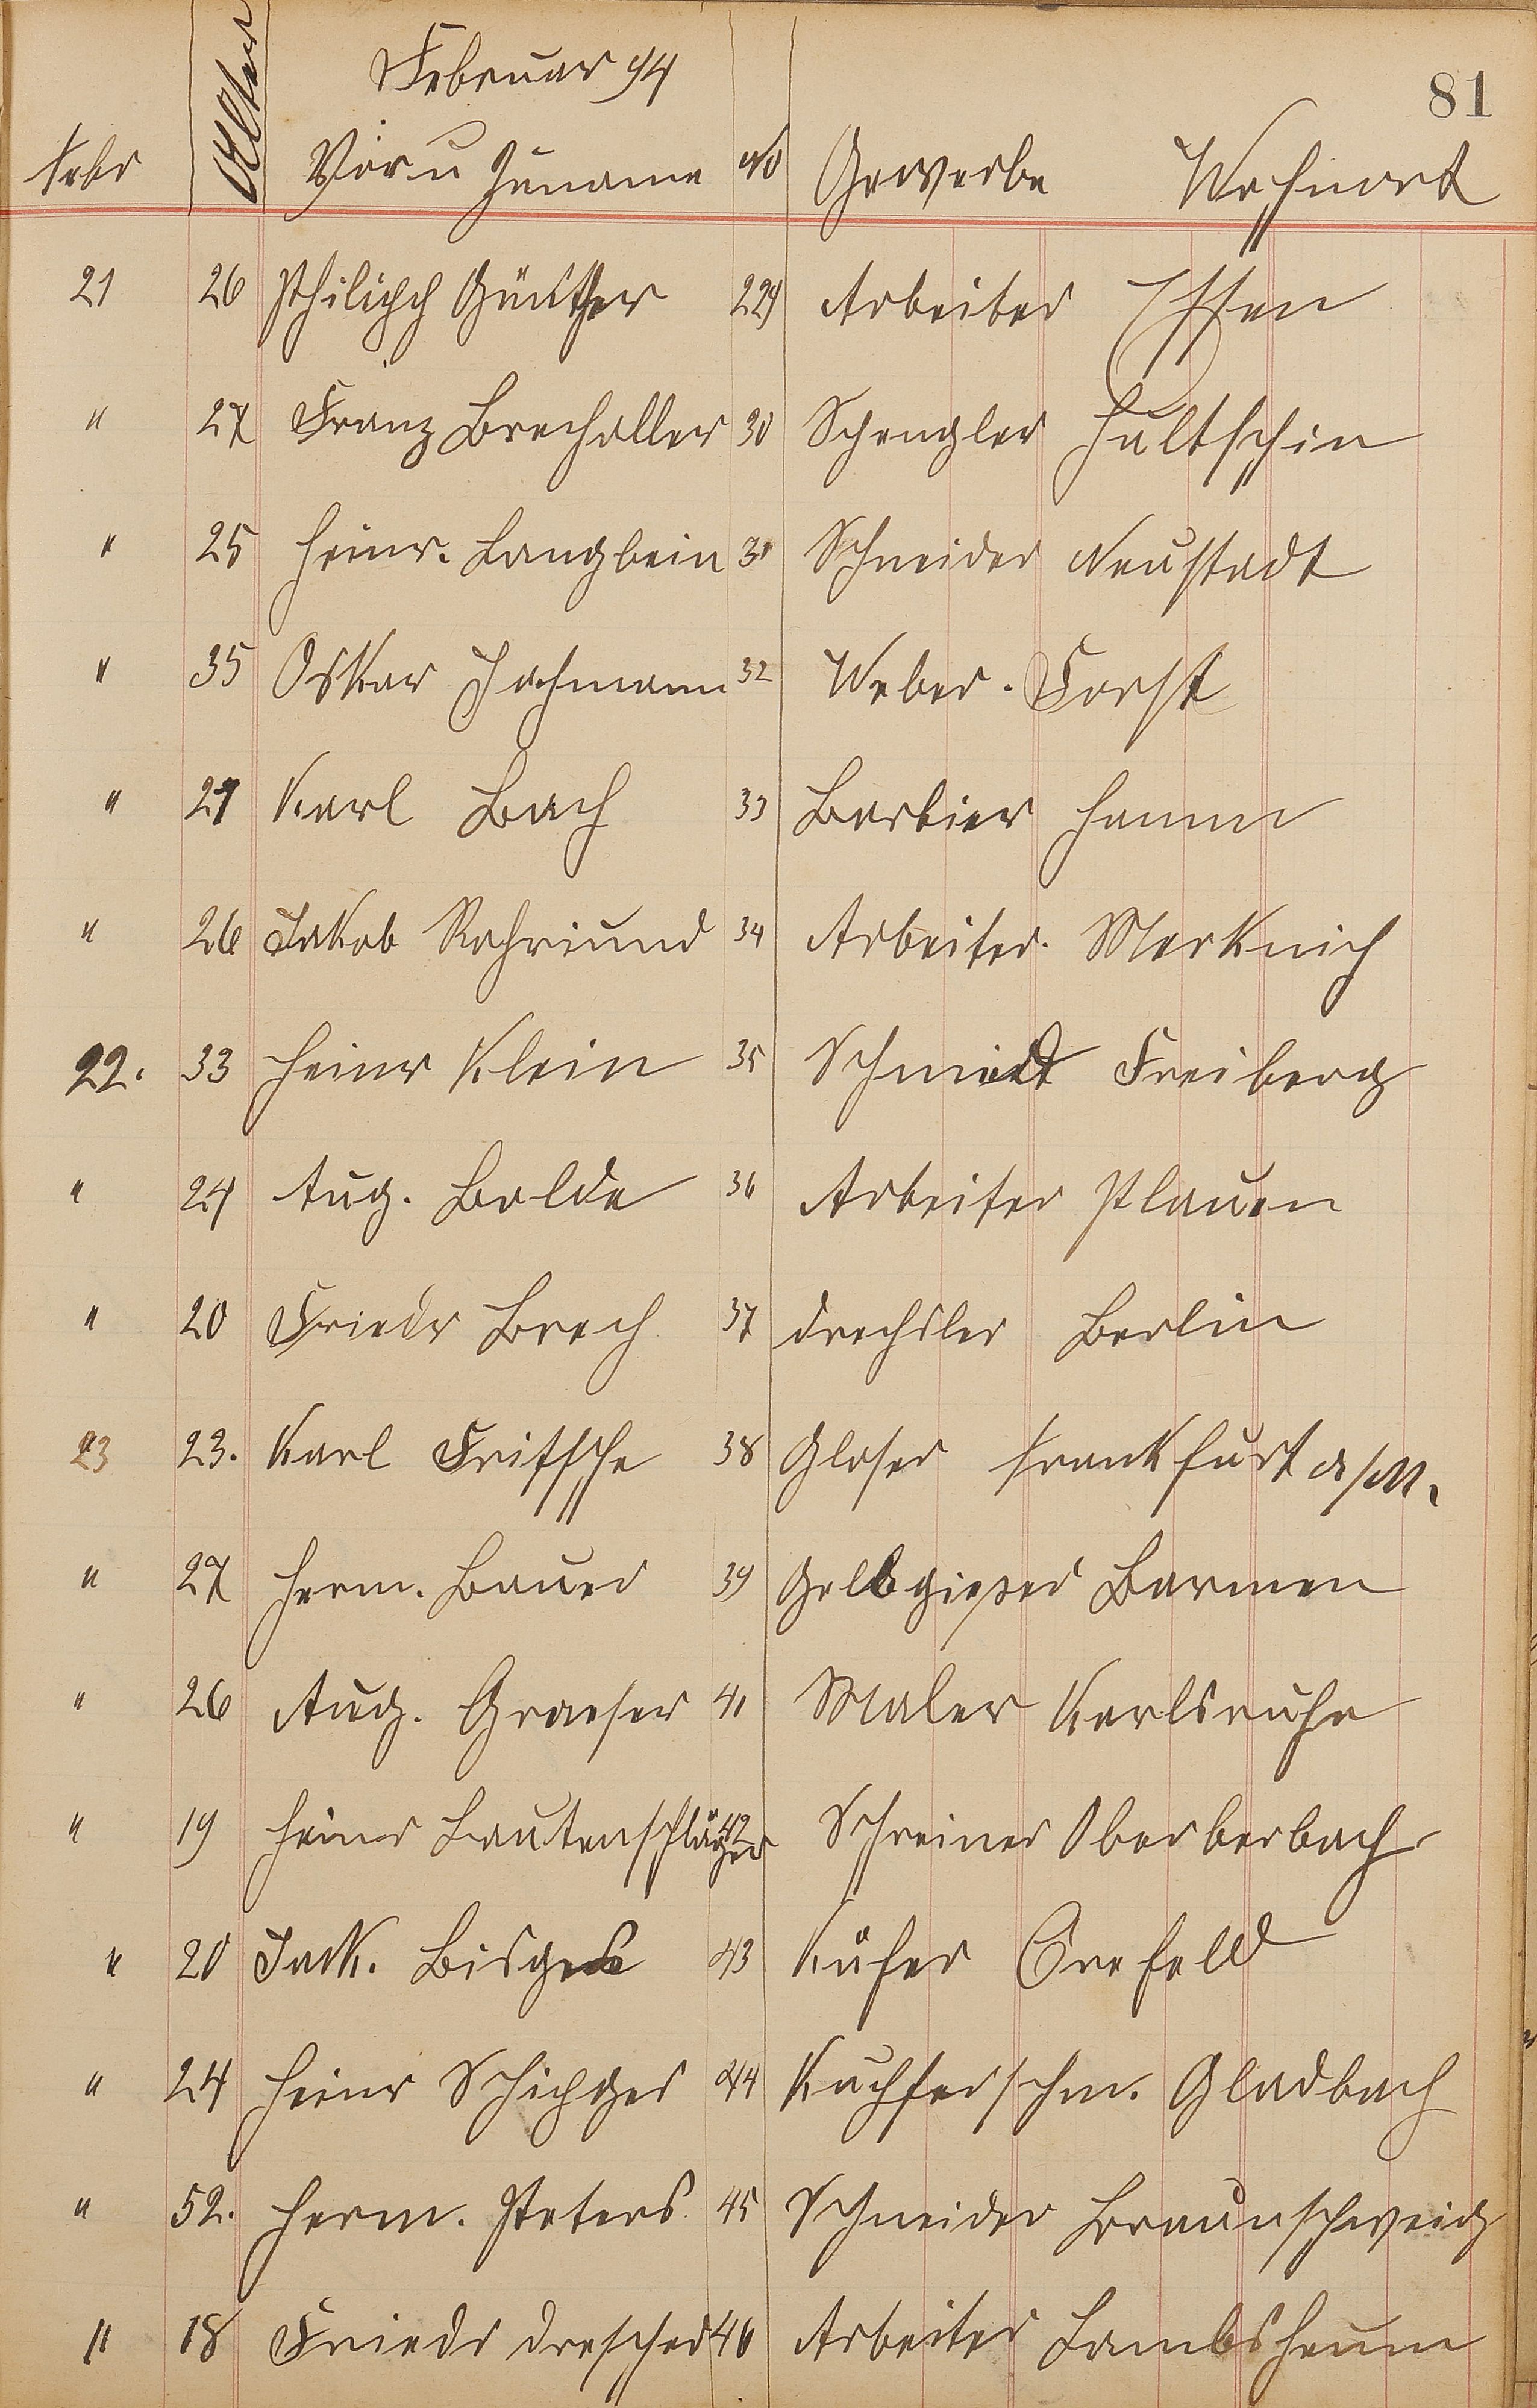 81
Februar 94
Febr Alter Vor u Zuname No Gewerbe Wohnort
21 26 Philipp Günther 229 Arbeiter Essen
" 27 Franz 30 Spengler Hultschin
" 25 Heinr. Langbein 31 Schneider Neustadt
" 35 Oskar Jachmann 32 Weber. Forst
" 29 Karl Bach 33 Barbier Hamm
" 26 Jakob 34 Arbeiter.
22. 33 Heinr Klein 35 Schmiedt Freiberg
" 24 Aug. Bolde 36 Arbeiter Plauen
" 20 Friedr Brech 37 Drechsler Berlin
23 23. Karl Fritsche 38 Glaser Frankfurt a/M.
" 27 Herm. Bauer 39 Gelbgießer Barmen
" 26 Aug. Graeser 41 Maler Karlsruhe
" 19 Heinr Lautenschläger 42 Schreiner Oberberbach
" 20 Jak. Bisges 43 Küfer Crefeld
" 24 Heinr 44 Kupferschm. Gladbach
" 52. Herm. Peters. 45 Schneider Braunschweig
" 18 Friedr Drescher 46 Arbeiter Lambsheim